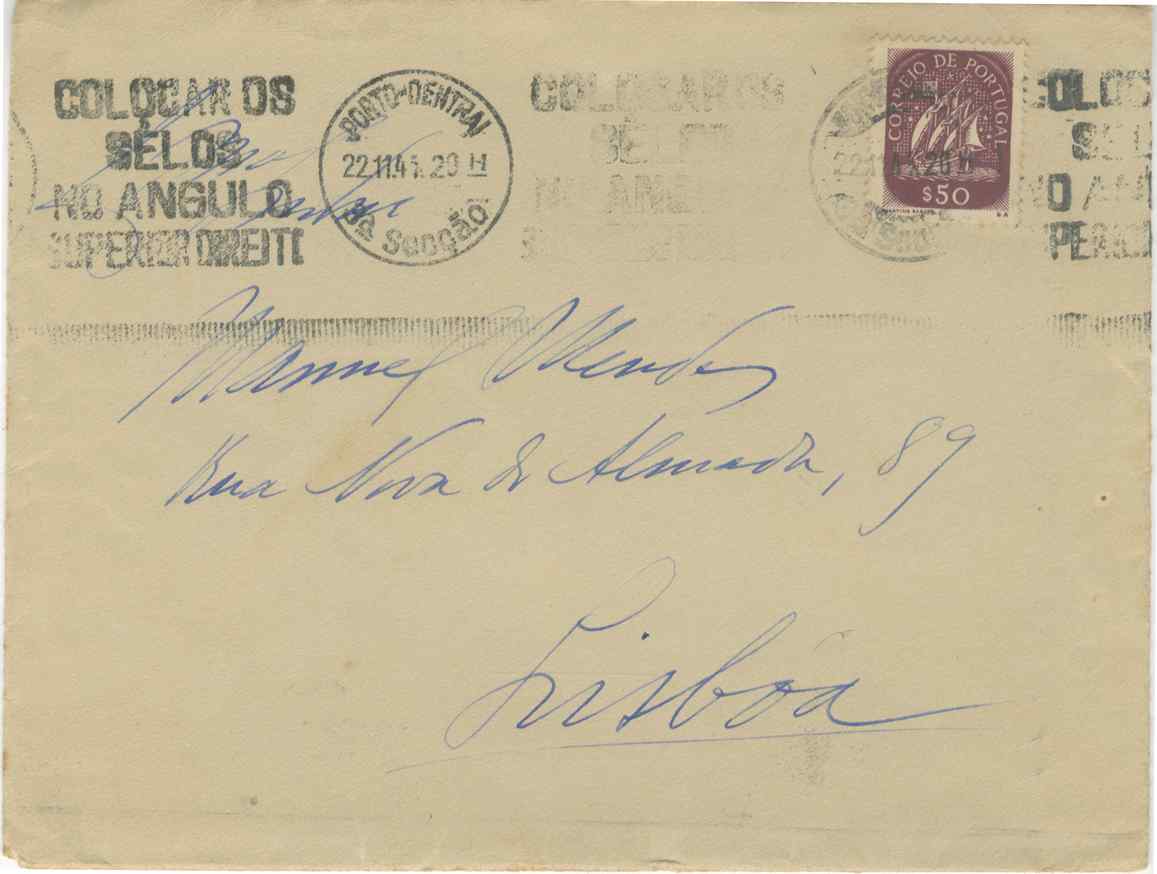 COLOCAR OS
SÊLOS
NO ANGULO
SUPERIOR DIREITO
PORTO-CENTRAL
22.11.4 . 20 H
3a Secção
COLOCAR OS
SÊLOS
NO ANG
S
22.11.4 . 20 H
CORREIO DE PORTUGAL
$50
COLOC
SÊL
NO AN
PERIO
Manuel Mendes
Rua Nova de Almada, 89
Lisbôa